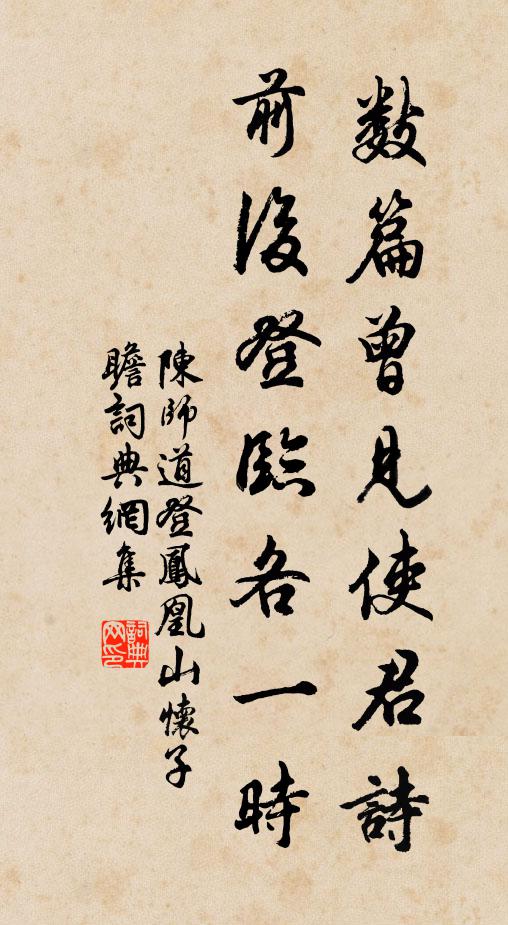 數篇曾見使君詩
前後登臨各一時
陳師道登鳳凰山懷子
瞻詞典網集
詞典網印